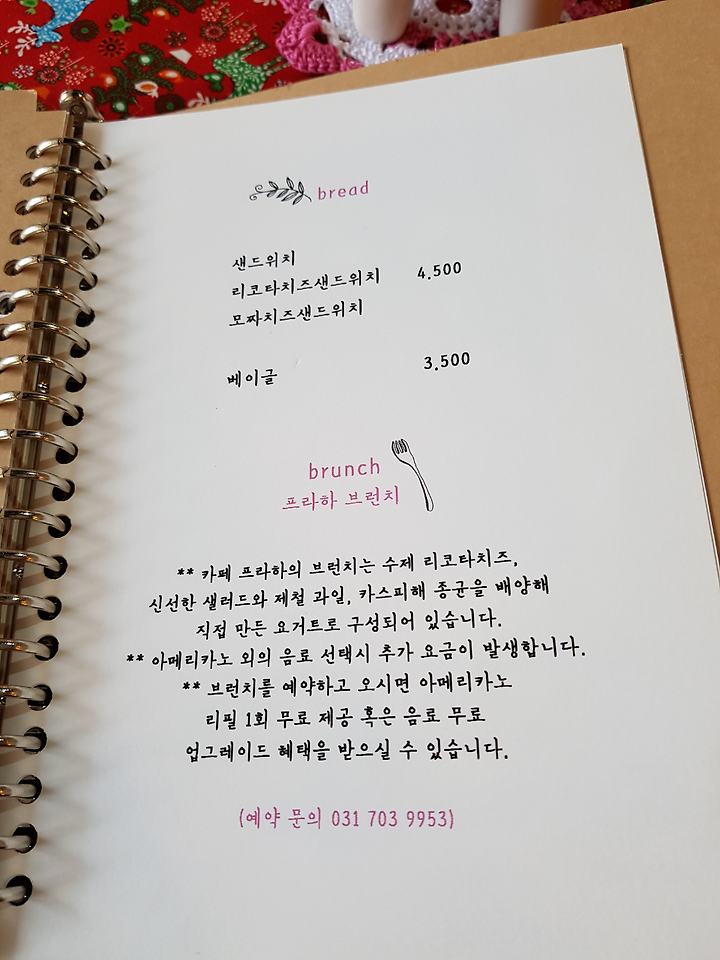 bread
샌드위치
리코타치즈샌드위치 4,500
모짜치즈샌드위치
베이글 3,500
brunch
프라하 브런치
** 카페 프라하의 브런치는 수제 리코타치즈,
신선한 샐러드와 제철 과일, 카스피해 종균을 배양해
직접 만든 요거트로 구성되어 있습니다.
** 아메리카노 외의 음료 선택시 추가 요금이 발생합니다.
** 브런치를 예약하고 오시면 아메리카노
리필 1회 무료 제공 혹은 음료 무료
업그레이드 혜택을 받으실 수 있습니다.
(예약 문의 031 703 9953)